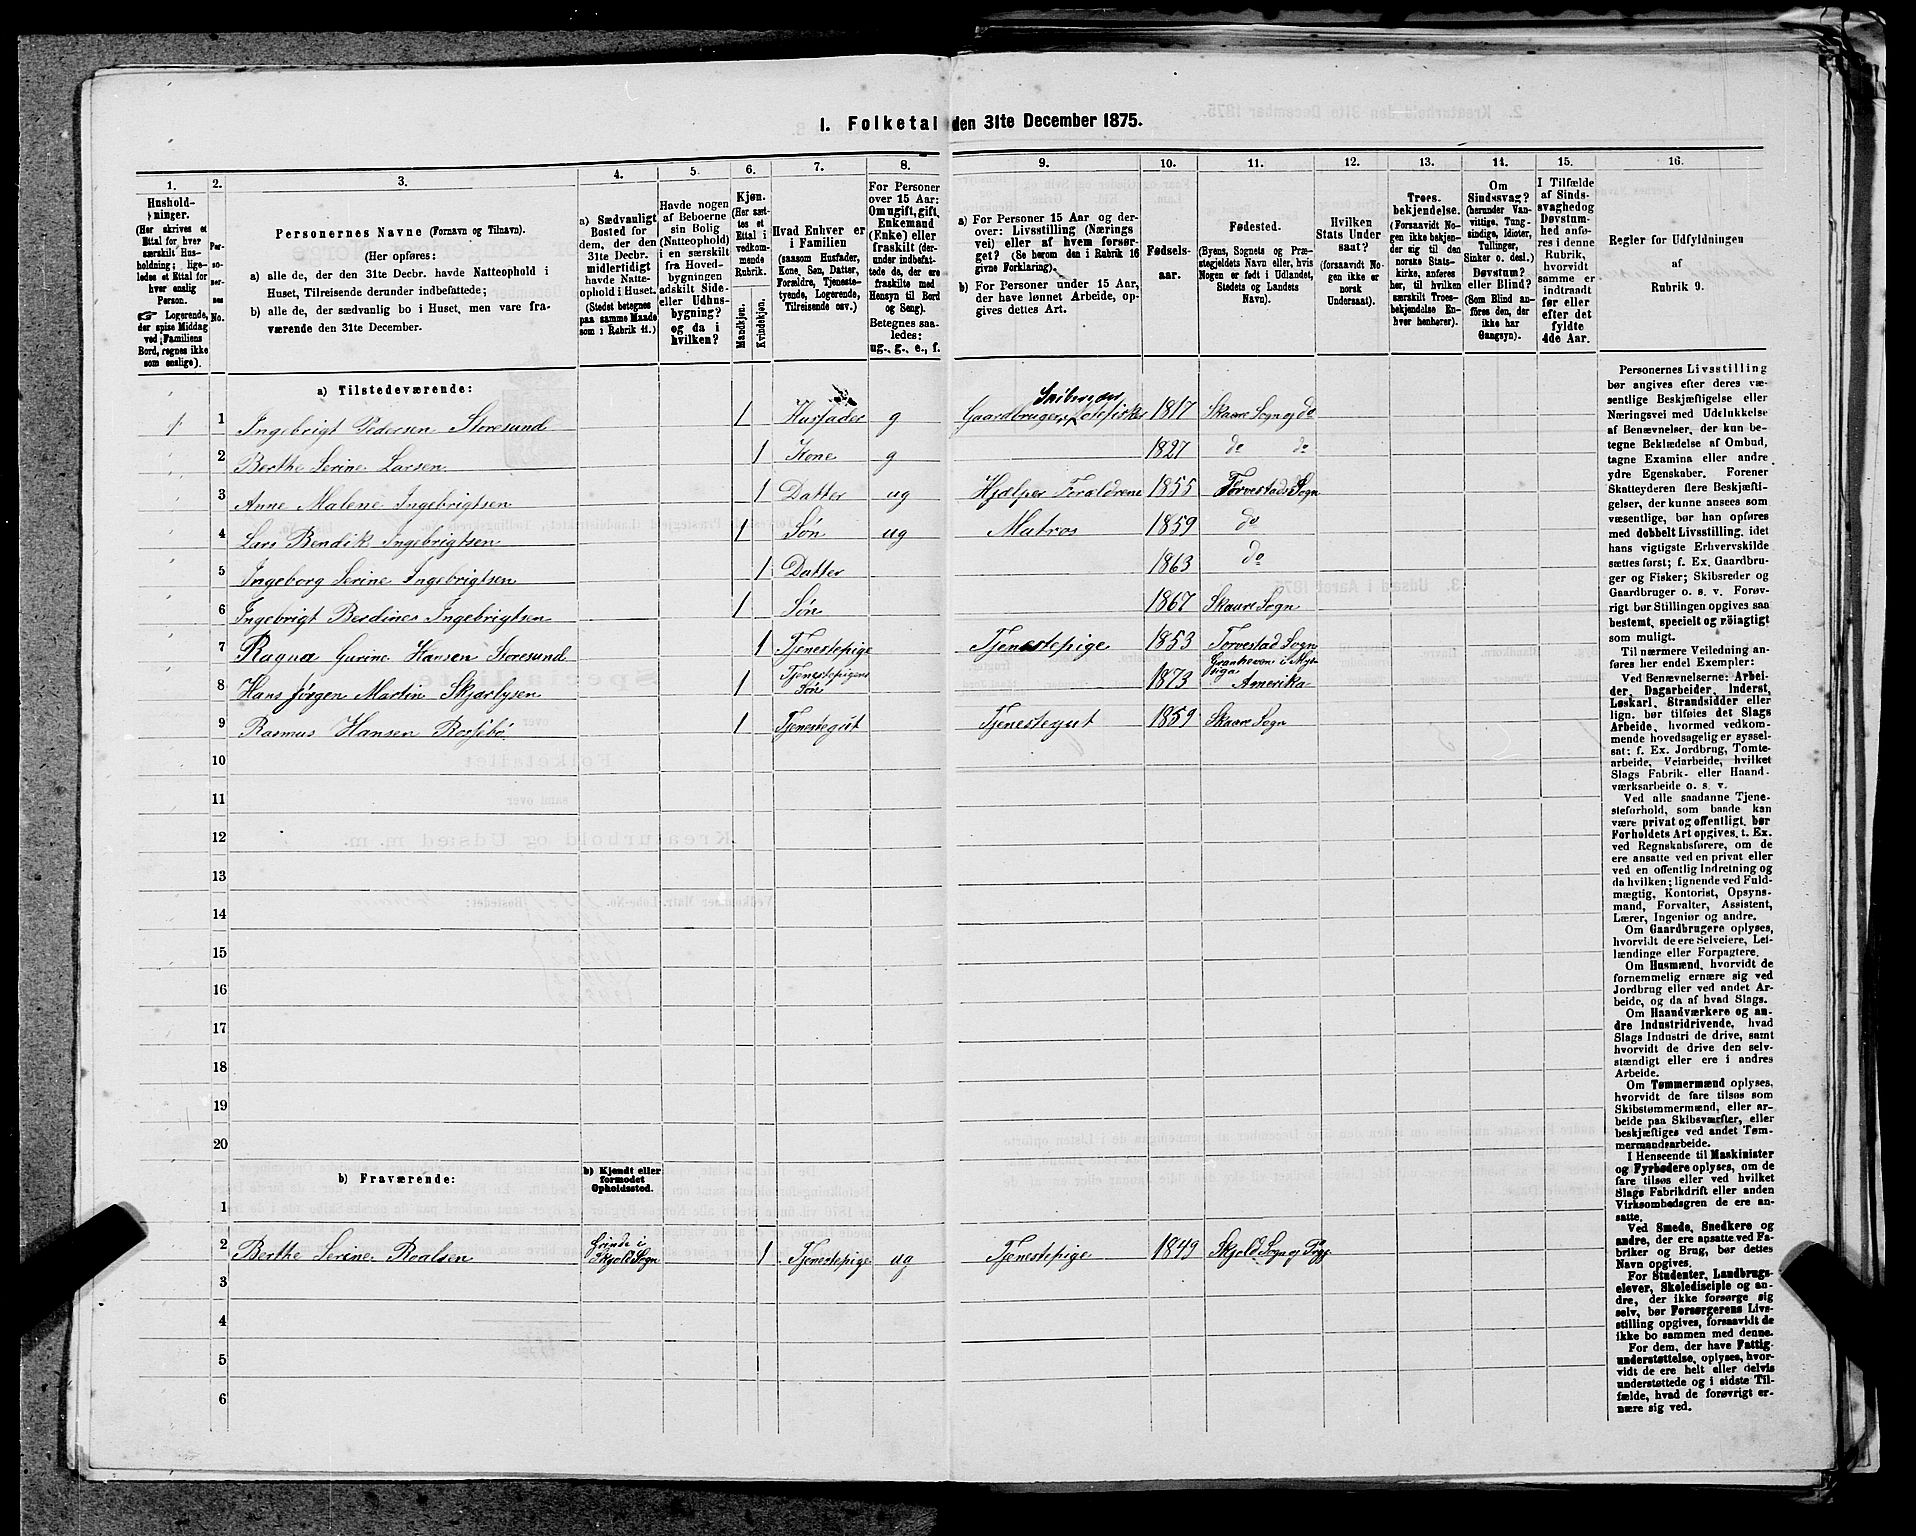 1. Folketal den 31te December 1875.
1.
2.
3.
4.
5.
6.
7.
8.
9.
10.
11.
12.
13.
14.
15.
16.
Hushold-
ninger.
(Her skrives et
Ettal for hver
særskilt Hus-
holdning; lige-
ledes et Ettal for
hver enslig
Person.
☞ Logerende,
der spise Middag
ved Familiens
Bord, regnes ikke
som enslige).
Per-
so-
ner-
nes
No.
Personernes Navne (Fornavn og Tilnavn).
(Her opføres:
a) alle de, der den 31te Decbr. havde Natteophold i
Huset, Tilreisende derunder indbefattede;
b) alle de, der sædvanlig bo i Huset, men vare fra-
værende den 31te December.
a) Sædvanligt
Bosted for
dem, der den
31te Decbr.
midlertidigt
havde Natte-
ophold i Huset.
(Stedet betegnes
paa samme Maade
som i Rubrik 11.)
Havde nogen
af Beboerne
sin Bolig
(Natteophold)
i en særskilt
fra Hoved-
bygningen
adskilt Side-
eller Udhus-
bygning?
og da i
hvilken?
Kjøn.
(Her sæt-
tes et
Ettal i
vedkom-
mende
Rubrik.
Mandkjøn.
Kvindekjøn.
Hvad Enhver er
i Familien
(saasom Husfader,
Kone, Søn, Datter,
Forældre, Tjeneste-
tyende, Logerende,
Tilreisende osv.)
For Personer
over 15 Aar:
Om ugift, gift,
Enkemand
(Enke) eller
fraskilt (der-
under indbefat-
tede de, der ere
fraskilte med
Hensyn til Bord
og Seng).
Betegnes saa-
ledes:
ug., g., e., f.
a) For Personer 15 Aar og der-
over: Livsstilling (Nærings
vei) eller af hvem forsør-
get? (Se herom den i Rubrik 16
givne Forklaring).
b) For Personer under 15 Aar,
der have lønnet Arbeide, op-
gives dettes Art.
Fødsels-
aar.
Fødested.
(Byens, Sognets og Præ-
stegjeldets Navn eller, hvis
Nogen er født i Udlandet,
Stedets og Landets
Navn).
Hvilken
Stats Under
saat?
(forsaavidt No-
gen ikke er
norsk
Undersaat).
Troes-
bekjendelse.
(Forsaavidt No-
gen ikke bekjen-
der sig til den
norske Stats-
kirke, anføres
her, til hvilken
særskilt Troes-
bekjendelse En-
hver henhører).
Om
Sindssvag?
(herunder Van-
vittige, Tung-
sindige, Idioter,
Tullinger,
Sinker o. desl.)
Døvstum?
eller Blind?
(Som Blind an-
føres den, der
ikke har
Gangsyn).
I Tilfælde
af Sinds-
svaghed og
Døvstum-
hed anfø-
res i denne
Rubrik,
hvorvidt
samme er
indtraadt
før eller
efter det
fyldte
4de Aar.
Regler for Udfyldningen
af
Rubrik 9.
a) Tilstedeværende:
1 1 Ingebrigt Pedersen Storesund 1 Husfader g Gaardbruger, Skibsreder 1817 Skaare Sogn og do
2 Berthe Serine Larsen 1 Kone g 1827 do do
3 Anne Malene Ingebrigtsen 1 Datter ug Hjælper Forældrene 1855 Torvestads Sogn
4 Lars Bendik Ingebrigtsen 1 Søn ug Matros 1859 do
5 Ingeborg Serine Ingebrigtsen 1 Datter 1863 do
6 Ingebrigt Berdines Ingebrigtsen 1 Søn 1867 Skaare Sogn
7 Ragna Gurine Hansen Storesund 1 Tjenestepige Tjenestepige 1853 Torvestad Sogn
8 Hans Jørgen Martin Skjærlysen 1 Tjenestepigens Søn 1873 Amerika
9 Rasmus Hansen Rossebø 1 Tjenestegut Tjenestegut 1859 Skaare Sogn
10
11
12
13
14
15
16
17
18
19
20
b) Fraværende:
b) Kjendt eller
formodet
Opholdssted.
1
2 Berthe Serine Roalsen Grinde i Skjold Sogn 1 Tjenestepige ug Tjenestepige 1849 Skjold Sogn og
3
4
5
6
Personernes Livsstilling
bør angives efter deres væ-
sentlige Beskjæftigelse eller
Næringsvei med Udelukkelse
af Benævnelser, der kun be-
tegne Beklædelse af Ombud,
tagne Examina eller andre
ydre Egenskaber. Forener
Skatteyderen flere Beskjæfti-
gelser, der kunne ansees som
væsentlige, bør han opføres
med dobbelt Livsstilling, idet
hans vigtigste Erhvervskilde
sættes først; f. Ex. Gaardbru-
ger og Fisker; Skibsreder og
Gaardbruger o. s. v. Forøv-
rigt bør Stillingen opgives saa
bestemt, specielt og nøiagtigt
som muligt.
Til nærmere Veiledning an-
føres her endel Exempler:
Ved Benævnelserne: Arbei-
der, Dagarbeider, Inderst,
Løskarl, Strandsidder eller
lign. bør tilføies det Slags
Arbeide, hvormed vedkom-
mende hovedsagelig er syssel-
sat; f. Ex. Jordbrug, Tomte-
arbeide, Veiarbeide, hvilket
Slags Fabrik- eller Haand-
værksarbeide o. s. v.
Ved alle saadanne Tjene-
steforhold, som baade kan
være privat og offentligt, bør
Forholdets Art opgives, t. Ex.
ved Regnskabsførere, om de
ere ansatte ved en privat eller
ved en offentlig Indretning og
da hvilken; lignende ved Fuld-
mægtig, Kontorist, Opsyns-
mand, Forvalter, Assistent,
Lærer, Ingeniør og andre.
Om Gaardbrugere oplyses,
hvorvidt de ere Selveiere, Lei-
lændinge eller Forpagtere.
Om Husmænd, hvorvidt de
fornemmelig ernære sig ved
Jordbrug eller ved andet Ar-
beide, og da af hvad Slags.
Om Haandværkere og an-
dre Industridrivende, hvad
Slags Industri de drive, samt
hvorvidt de drive den selv-
stændigt eller ere i andres
Arbeide.
Om Tømmermænd oplyses,
hvorvidt de fare tilsøs som
Skibstømmermænd, eller ar-
beide paa Skibsværfter, eller
beskjæftiges ved andet Tøm-
mermandsarbeide.
I Henseende til Maskinister
og Fyrbødere oplyses, om de
fare tilsøs eller ved hvilket
Slags Fabrikdrift eller anden
Virksomhedsgren de ere an-
satte.
Ved Smede, Snedkere og
andre, der ere ansatte ved Fa-
briker og Brug, bør dettes
Navn opgives.
For Studenter, Landbrugs-
elever, Skoledisciple og an-
dre, der ikke forsørge sig
selv, bør Forsørgerens Livs-
stilling opgives, forsaavidt de
ikke bo sammen med denne.
For dem, der have Fattig-
understøttelse, oplyses, hvor-
vidt de ere helt eller delvis
understøttede og i sidste Til-
fælde, hvad de forøvrigt er-
nære sig ved.